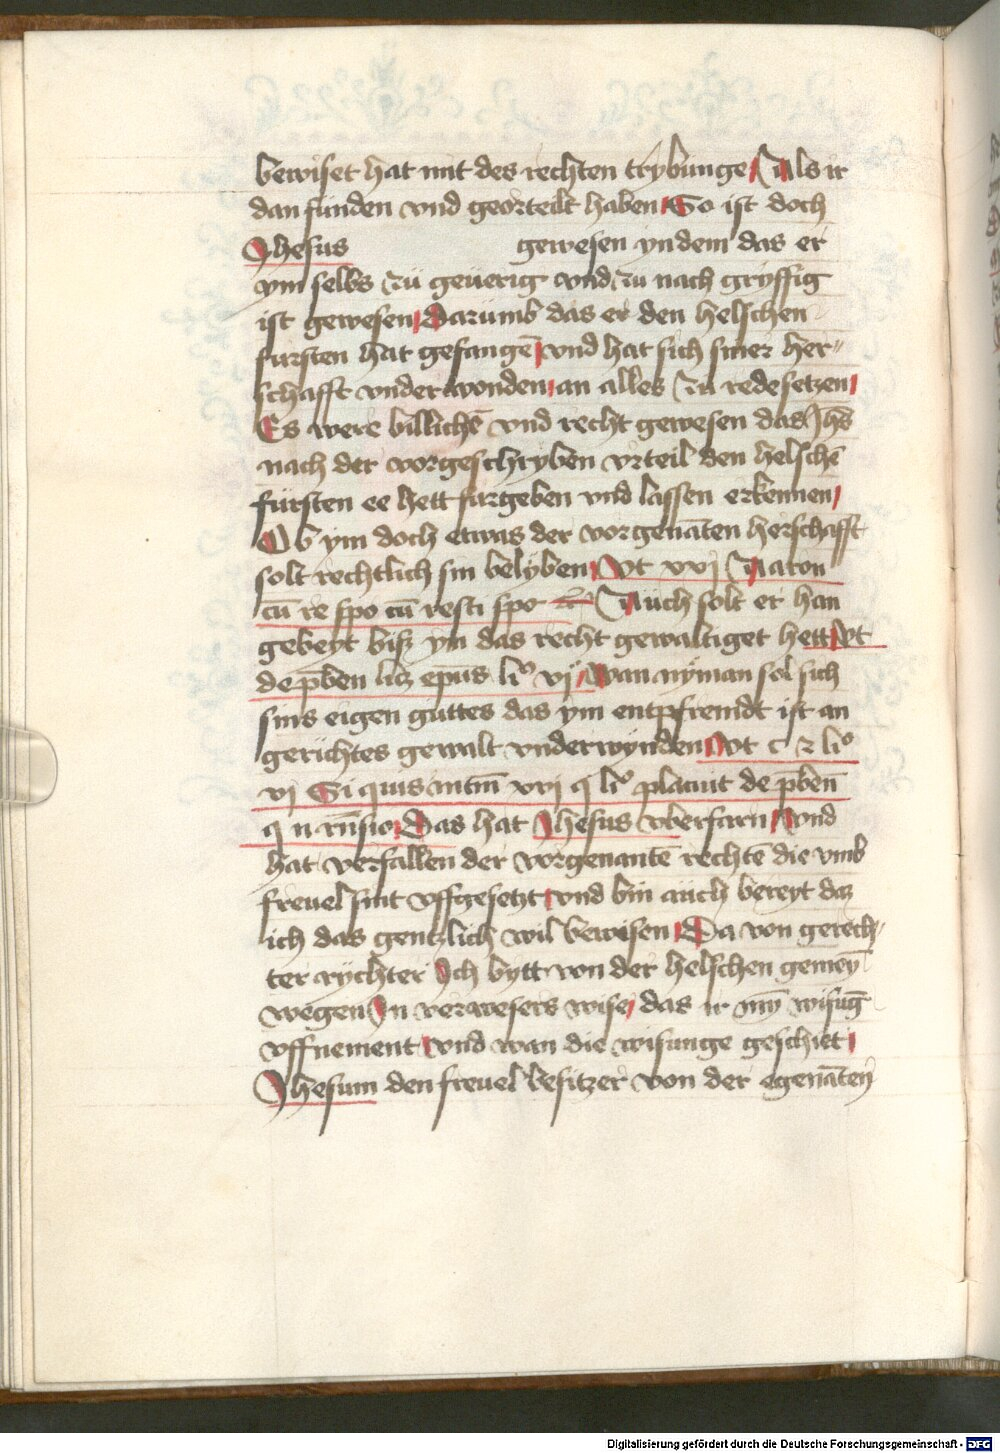 bewiset hat mit des rechten trybunge Als ir
dan funden vnd georteilt haben So ist doch
Jhesus gewesen yn dem das er
ym selbs zü geüerig vnd zu nach gryffig
ist gewesen Darümb das er den helschen
fursten hat gefangē vnd hat sich siner her=
schafft vnderwonden an alles zu rede setzen
Es were billichē vnd recht gewesen das Jhs̄
nach der vorgeschryben vrteil den helschē
fürsten ee hett furgeben vnd lassen erkennen
Ob ym doch etwas der vorgenāten herschafft
solt rechtlich sin belyben Vt xvj
cū re spo cū resti spo Aüch solt er han
gebeyt bisz ym das recht gewaltiget hett Vt
de p̄ben licz ep̄us liº vj Wan nÿman sol sich
sins eigen guttes das ym entpfremdt ist an
gerichtes gewalt vnderwÿnden Vt c 2 liº
vj Si quis āntm̄ xvj q liº placuit de p̄ben̄
q n Das hat Jhesus vberfarn vnd
hat verfallen der vorgenantē rechtē die vmb
freuel sint vffgesetzt vnd bin aüch bereyt daz
ich das gentzlich wil bewisen Da von gerech=
ter rÿchter Ich bytt von der helschen gemeȳ
wegen In verwesers wise das ir mȳ wisūg
vffnement vnd wan die wisunge geschiet
Jhesum den freuel besitzer von der egenāten
Digitalisierung gefördert durch die Deutsche Forschungsgemeinschaft - DFG